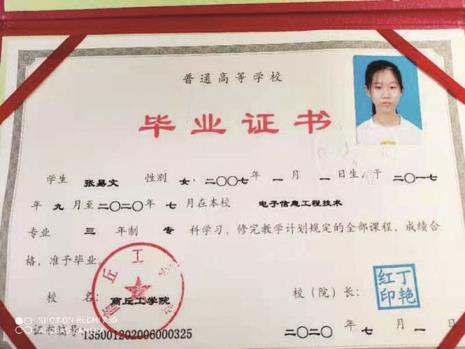 普通高等学校
毕业证书
学生 张易文 性别 女,二〇〇七年 一月 一日生,于 二〇一七
年 九月至二〇二〇年 七月在本校 电子信息工程技术
专业 三 年制 专 科学习,修完教学计划规定的全部课程,成绩合
格,准予毕业。
校 名: 商丘工学院 校(院)长: 丁艳红印
135001202006000325 二〇二〇年 七月 一日
SHOT ON REDMI